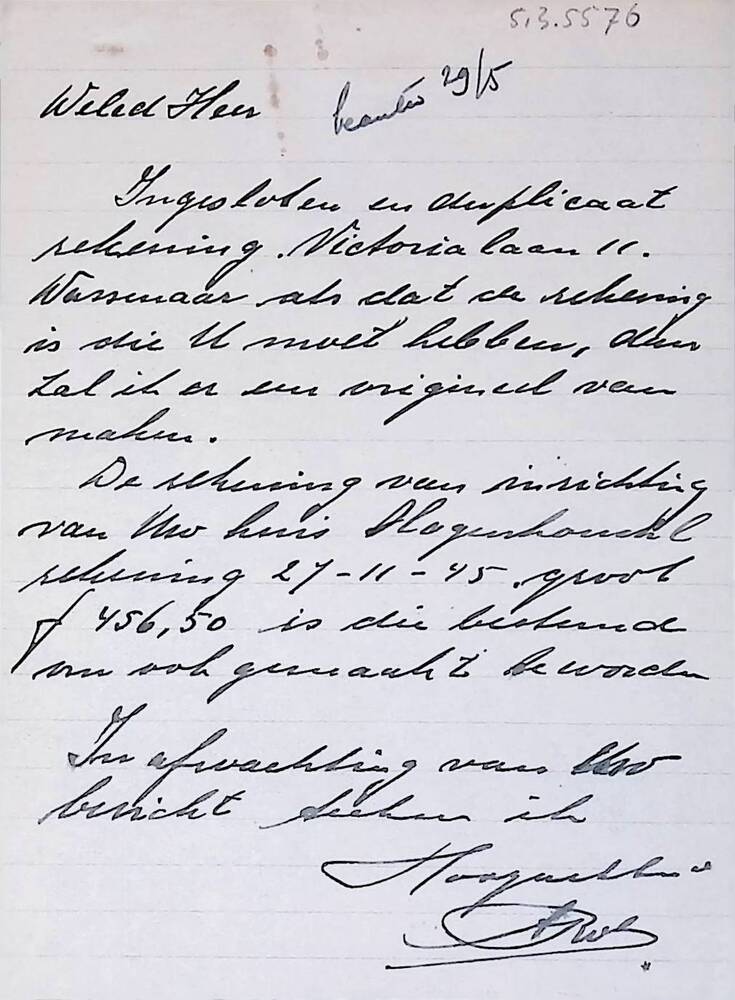 5.3.5576
Weled Heer
beantw 29/5
Ingesloten en duplicaat
rekening. Victoria laan 11.
Wassenaar als dat de rekening
is die U moet hebben, dan
zal ik er een origineel van
maken.
De rekening van inrichting
van Uw huis
rekening 27-11-45. groot
f 456,50 is die bestemd
om ook gemaakt te worden
In afwachting van Uw
bericht teeken ik
Hoogachtend